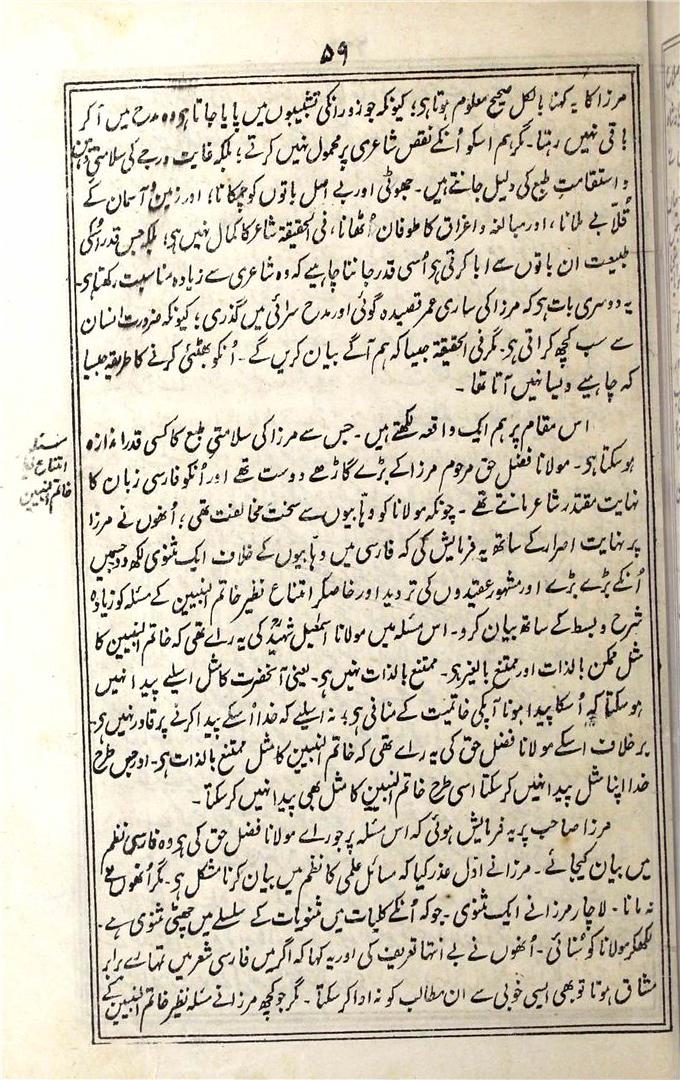 ۵۹
مرزا کا یہ کہنا بالکل صحیح معلوم ہوتا ہی؛ کیونکہ جو زور انکی تشبیبوں میں پایا جاتا ہی وہ مدح میں آکر
باقی نہیں رہتا۔ مگر ہم اسکو اُنکے نقص شاعری پر محمول نہیں کرتے؛ بلکہ غایت درجے کی سلامتیِ ذہن
و استقامتِ طبع کی دلیل جانتے ہیں۔ جھوٹی اور بے اصل باتوں کو چمکانا؛ اور زمین و آسمان کے
قُلّابے ملانا، اور مبالغہ و اغراق کا طوفان اُٹھانا، فی الحقیقۃ شاعر کا کمال نہیں ہی؛ بلکہ جس قدر اُسکی
طبیعت ان باتوں سے ابا کرتی ہی اُسی قدر جاننا چاہیے کہ وہ شاعری سے زیادہ مناسبت رکھتا ہی۔
یہ دوسری بات ہی کہ مرزا کی ساری عمر قصیدہ گوئی اور مدح سرائی میں گذری؛ کیونکہ ضرورت انسان
سے سب کچھ کراتی ہی۔ مگر فی الحقیقۃ جیسا کہ ہم آگے بیان کریں گے۔ اُنکو بھٹئی کرنے کا طریقہ جیسا
کہ چاہیے ویسا نہیں آتا تھا ۔
اس مقام پر ہم ایک واقعہ لکھتے ہیں۔ جس سے مرزا کی سلامتیِ طبع کا کسی قدر اندازہ
ہو سکتا ہی۔ مولانا فضل حق مرحوم مرزا کے بڑے گاڑھے دوست تھے اور اُنکو فارسی زبان کا
مسئلہ
امتناع نظیر
خاتم النبیین
نہایت مقتدر شاعر مانتے تھے ۔ چونکہ مولانا کو وہابیوں سے سخت مخالفت تھی؛ اُنھوں نے مرزا
پر نہایت اصرار کے ساتھ یہ فرمایش کی کہ فارسی میں وہابیوں کے خلاف ایک مثنوی لکھ دو جسمیں
اُنکے بڑے بڑے اور مشہور عقیدوں کی تردید اور خاصکر امتناع نظیر خاتم النبیین کے مسئلہ کو زیادہ
شرح و بسط کے ساتھ بیان کرو۔ اس مسئلہ میں مولانا اسمٰعیل شہیدؒ کی یہ راے تھی کہ خاتم النبیین کا
مثل ممکن بالذات اور ممتنع بالغیر ہی۔ ممتنع بالذات نہیں ہی۔ یعنی آنحضرت کا مثل اسلیے پیدا نہیں
ہو سکتا کہ اُسکا پیدا ہونا آپکی خاتمیت کے منافی ہی؛ نہ اسلیے کہ خدا اُسکے پیدا کرنے پر قادر نہیں ہی۔
برخلاف اسکے مولانا فضل حق کی یہ راے تھی کہ خاتم النبیین کا مثل ممتنع بالذات ہی۔ اور جس طرح
خدا اپنا مثل پیدا نہیں کر سکتا اسی طرح خاتم النبیین کا مثل بھی پیدا نہیں کر سکتا ۔
مرزا صاحب پر یہ فرمایش ہوئی کہ اس مسئلہ پر جو راے مولانا فضل حق کی ہی وہ فارسی نظم
میں بیان کیجائے ۔ مرزا نے اول عذر کیا کہ مسائل علمی کا نظم میں بیان کرنا مشکل ہی۔ مگر اُنھوں نے
نہ مانا ۔ لاچار مرزا نے ایک مثنوی ۔ جو کہ اُنکے کلیات میں مثنویات کے سلسلے میں چھٹی مثنوی ہے۔
لکھکر مولانا کو سُنائی ۔ اُنھوں نے بے انتہا تعریف کی اور یہ کہا کہ اگر میں فارسی شعر میں تمہارے برابر
مشاق ہوتا تو بھی ایسی خوبی سے ان مطالب کو نہ ادا کر سکتا ۔ مگر جو کچھ مرزا نے مسئلہ نظیر خاتم النبیین کے